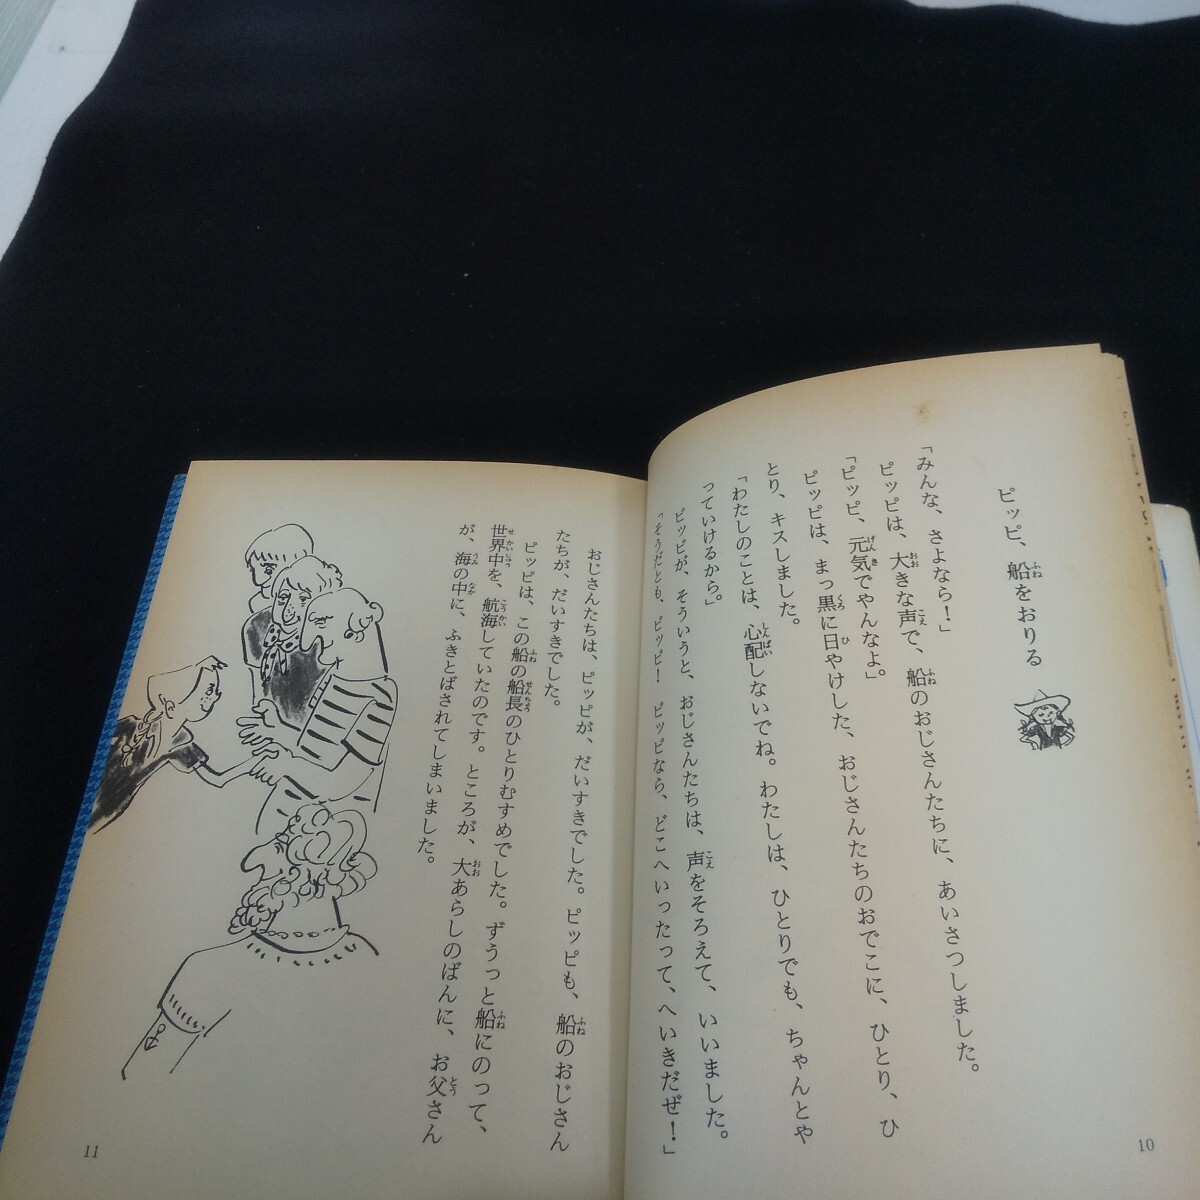 ピッピ、船をおりる
「みんな、さよなら！」
ピッピは、大きな声で、船のおじさんたちに、あいさつしました。
「ピッピ、元気でやんなよ。」
ピッピは、まっ黒に日やけした、おじさんたちのおでこに、ひとり、ひ
とり、キスしました。
「わたしのことは、心配しないでね。わたしは、ひとりでも、ちゃんとや
っていけるから。」
ピッピが、そういうと、おじさんたちは、声をそろえて、いいました。
「そうだとも、ピッピ！　ピッピなら、どこへいったって、へいきだぜ！」
10
おじさんたちは、ピッピが、だいすきでした。ピッピも、船のおじさん
たちが、だいすきでした。
ピッピは、この船の船長のひとりむすめでした。ずうっと船にのって、
世界中を、航海していたのです。ところが、大あらしのばんに、お父さん
が、海の中に、ふきとばされてしまいました。
11